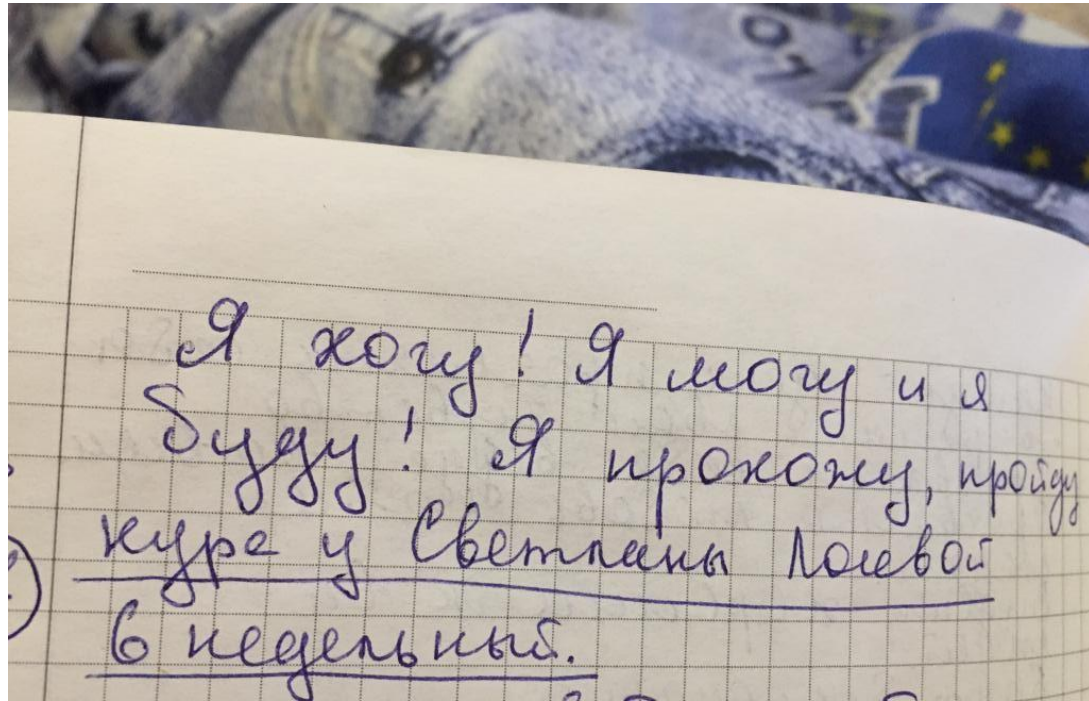 Я хочу! Я могу и я
буду! Я прохожу, пройду
курс у Светланы
6 недельный.